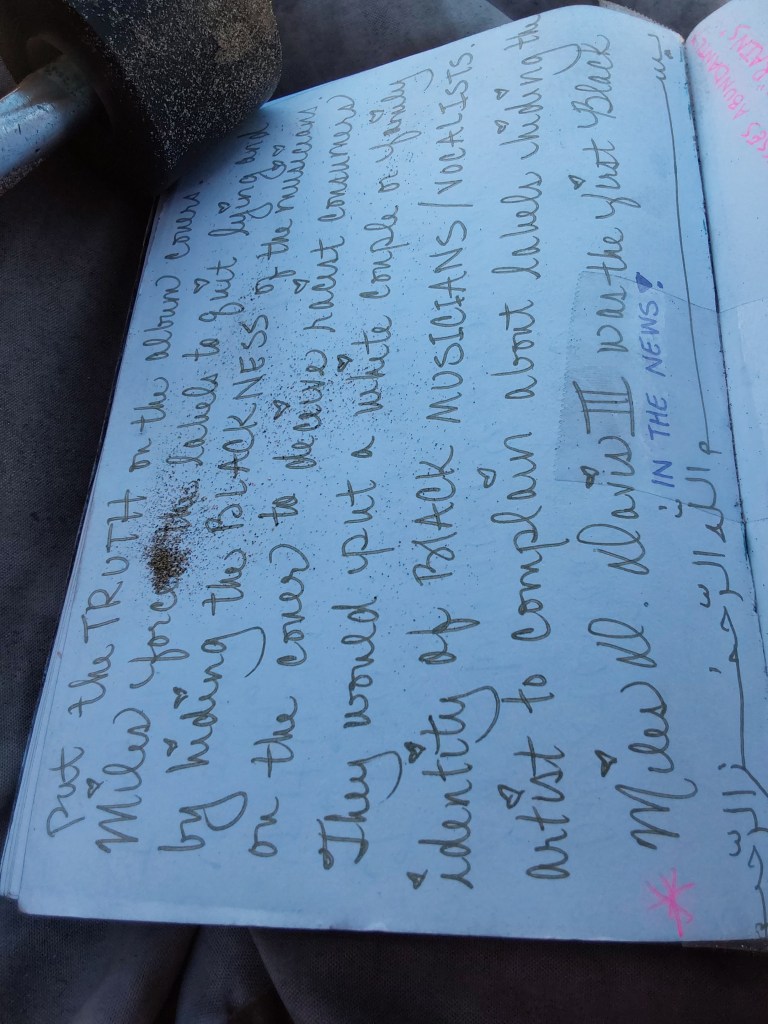 بسم الله الرحمن الرحيم
IN THE NEWS!
* Miles D. Davis III was the first Black
artist to complain about labels hiding the
identity of BLACK MUSICIANS/VOCALISTS.
They would put a white couple or family
on the cover to deceive racist consumers
by hiding the BLACKNESS of the musician.
Miles forced the labels to quit lying and
put the TRUTH on the album cover.